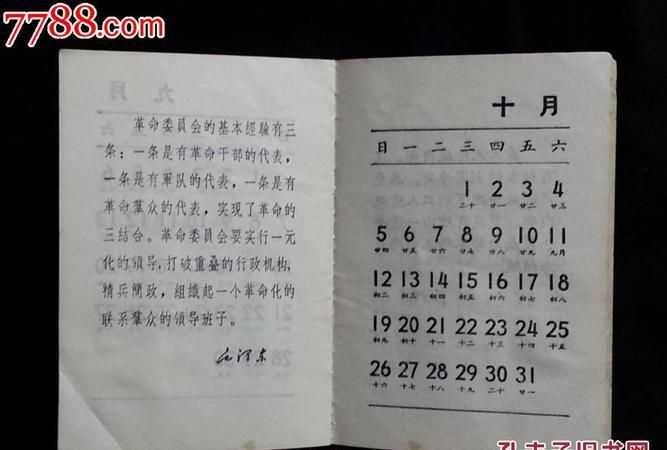 7788.com
革命委員会的基本經驗有三
条：一条是有革命干部的代表，
一条是有軍队的代表，一条是有
革命羣众的代表，实现了革命的
三結合。革命委員会要实行一元
化的领导，打破重叠的行政机构，
精兵簡政，組織起一个革命化的
联系羣众的领导班子。
毛泽东
十月
日 一 二 三 四 五 六
1 2 3 4
二十 廿一 廿二 廿三
5 6 7 8 9 10 11
廿四 廿五 廿六 廿七 廿八 廿九 九月
12 13 14 15 16 17 18
初二 初三 初四 初五 初六 初七 初八
19 20 21 22 23 24 25
初九 初十 十一 十二 十三 十四 十五
26 27 28 29 30 31
十六 十七 十八 十九 二十 廿一
孔夫子旧书网